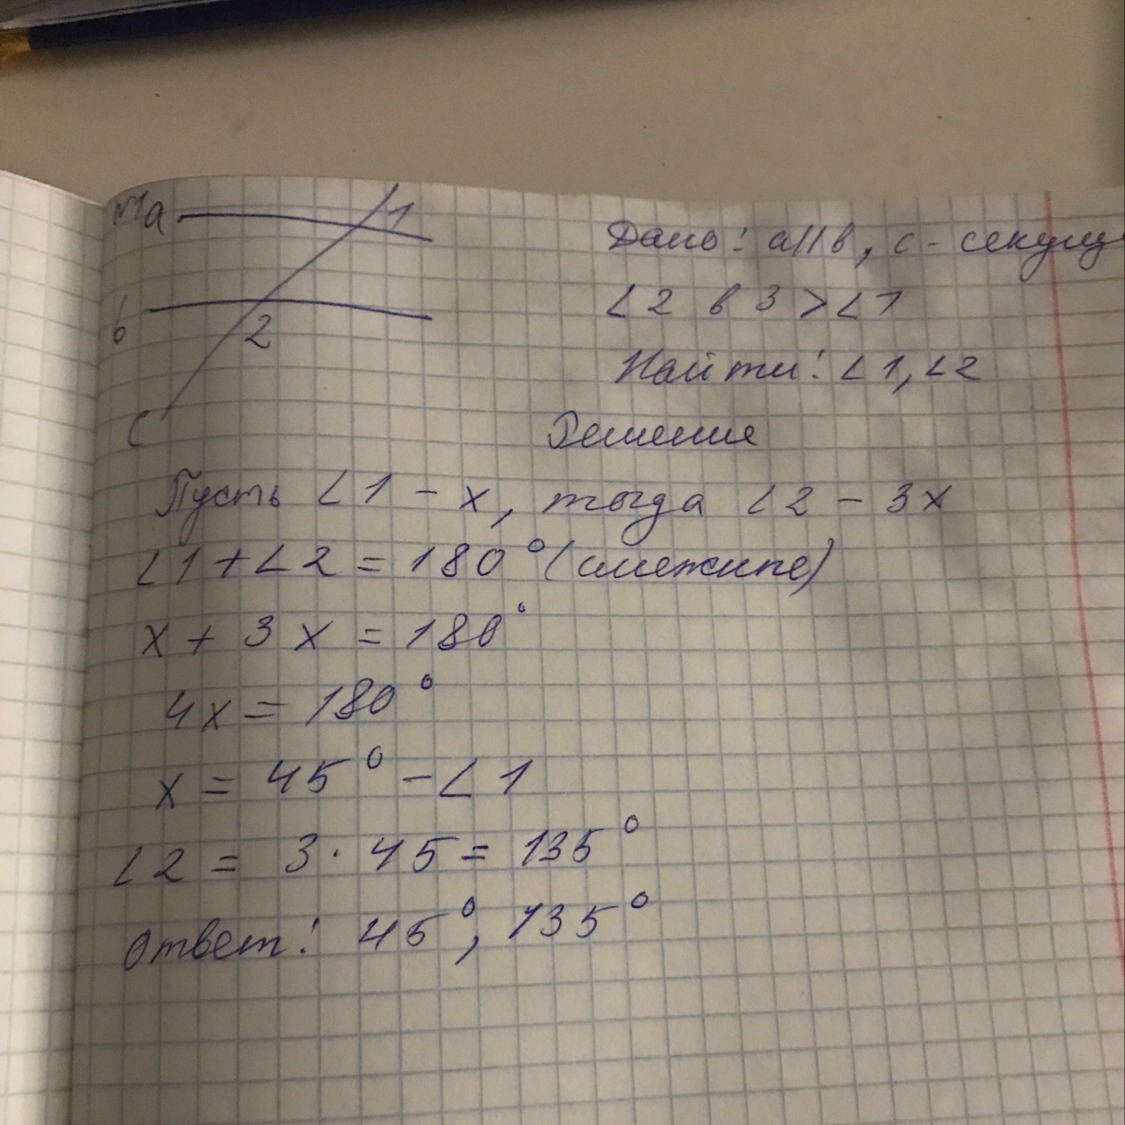 №1 a 1
Дано: a||b, c - секущ
∠2 в 3 > ∠1
b 2
Найти: ∠1, ∠2
c
Решение
Пусть ∠1 - x, тогда ∠2 - 3x
∠1 + ∠2 = 180° (смежные)
x + 3x = 180°
4x = 180°
x = 45° - ∠1
∠2 = 3 · 45 = 135°
Ответ: 45°, 135°